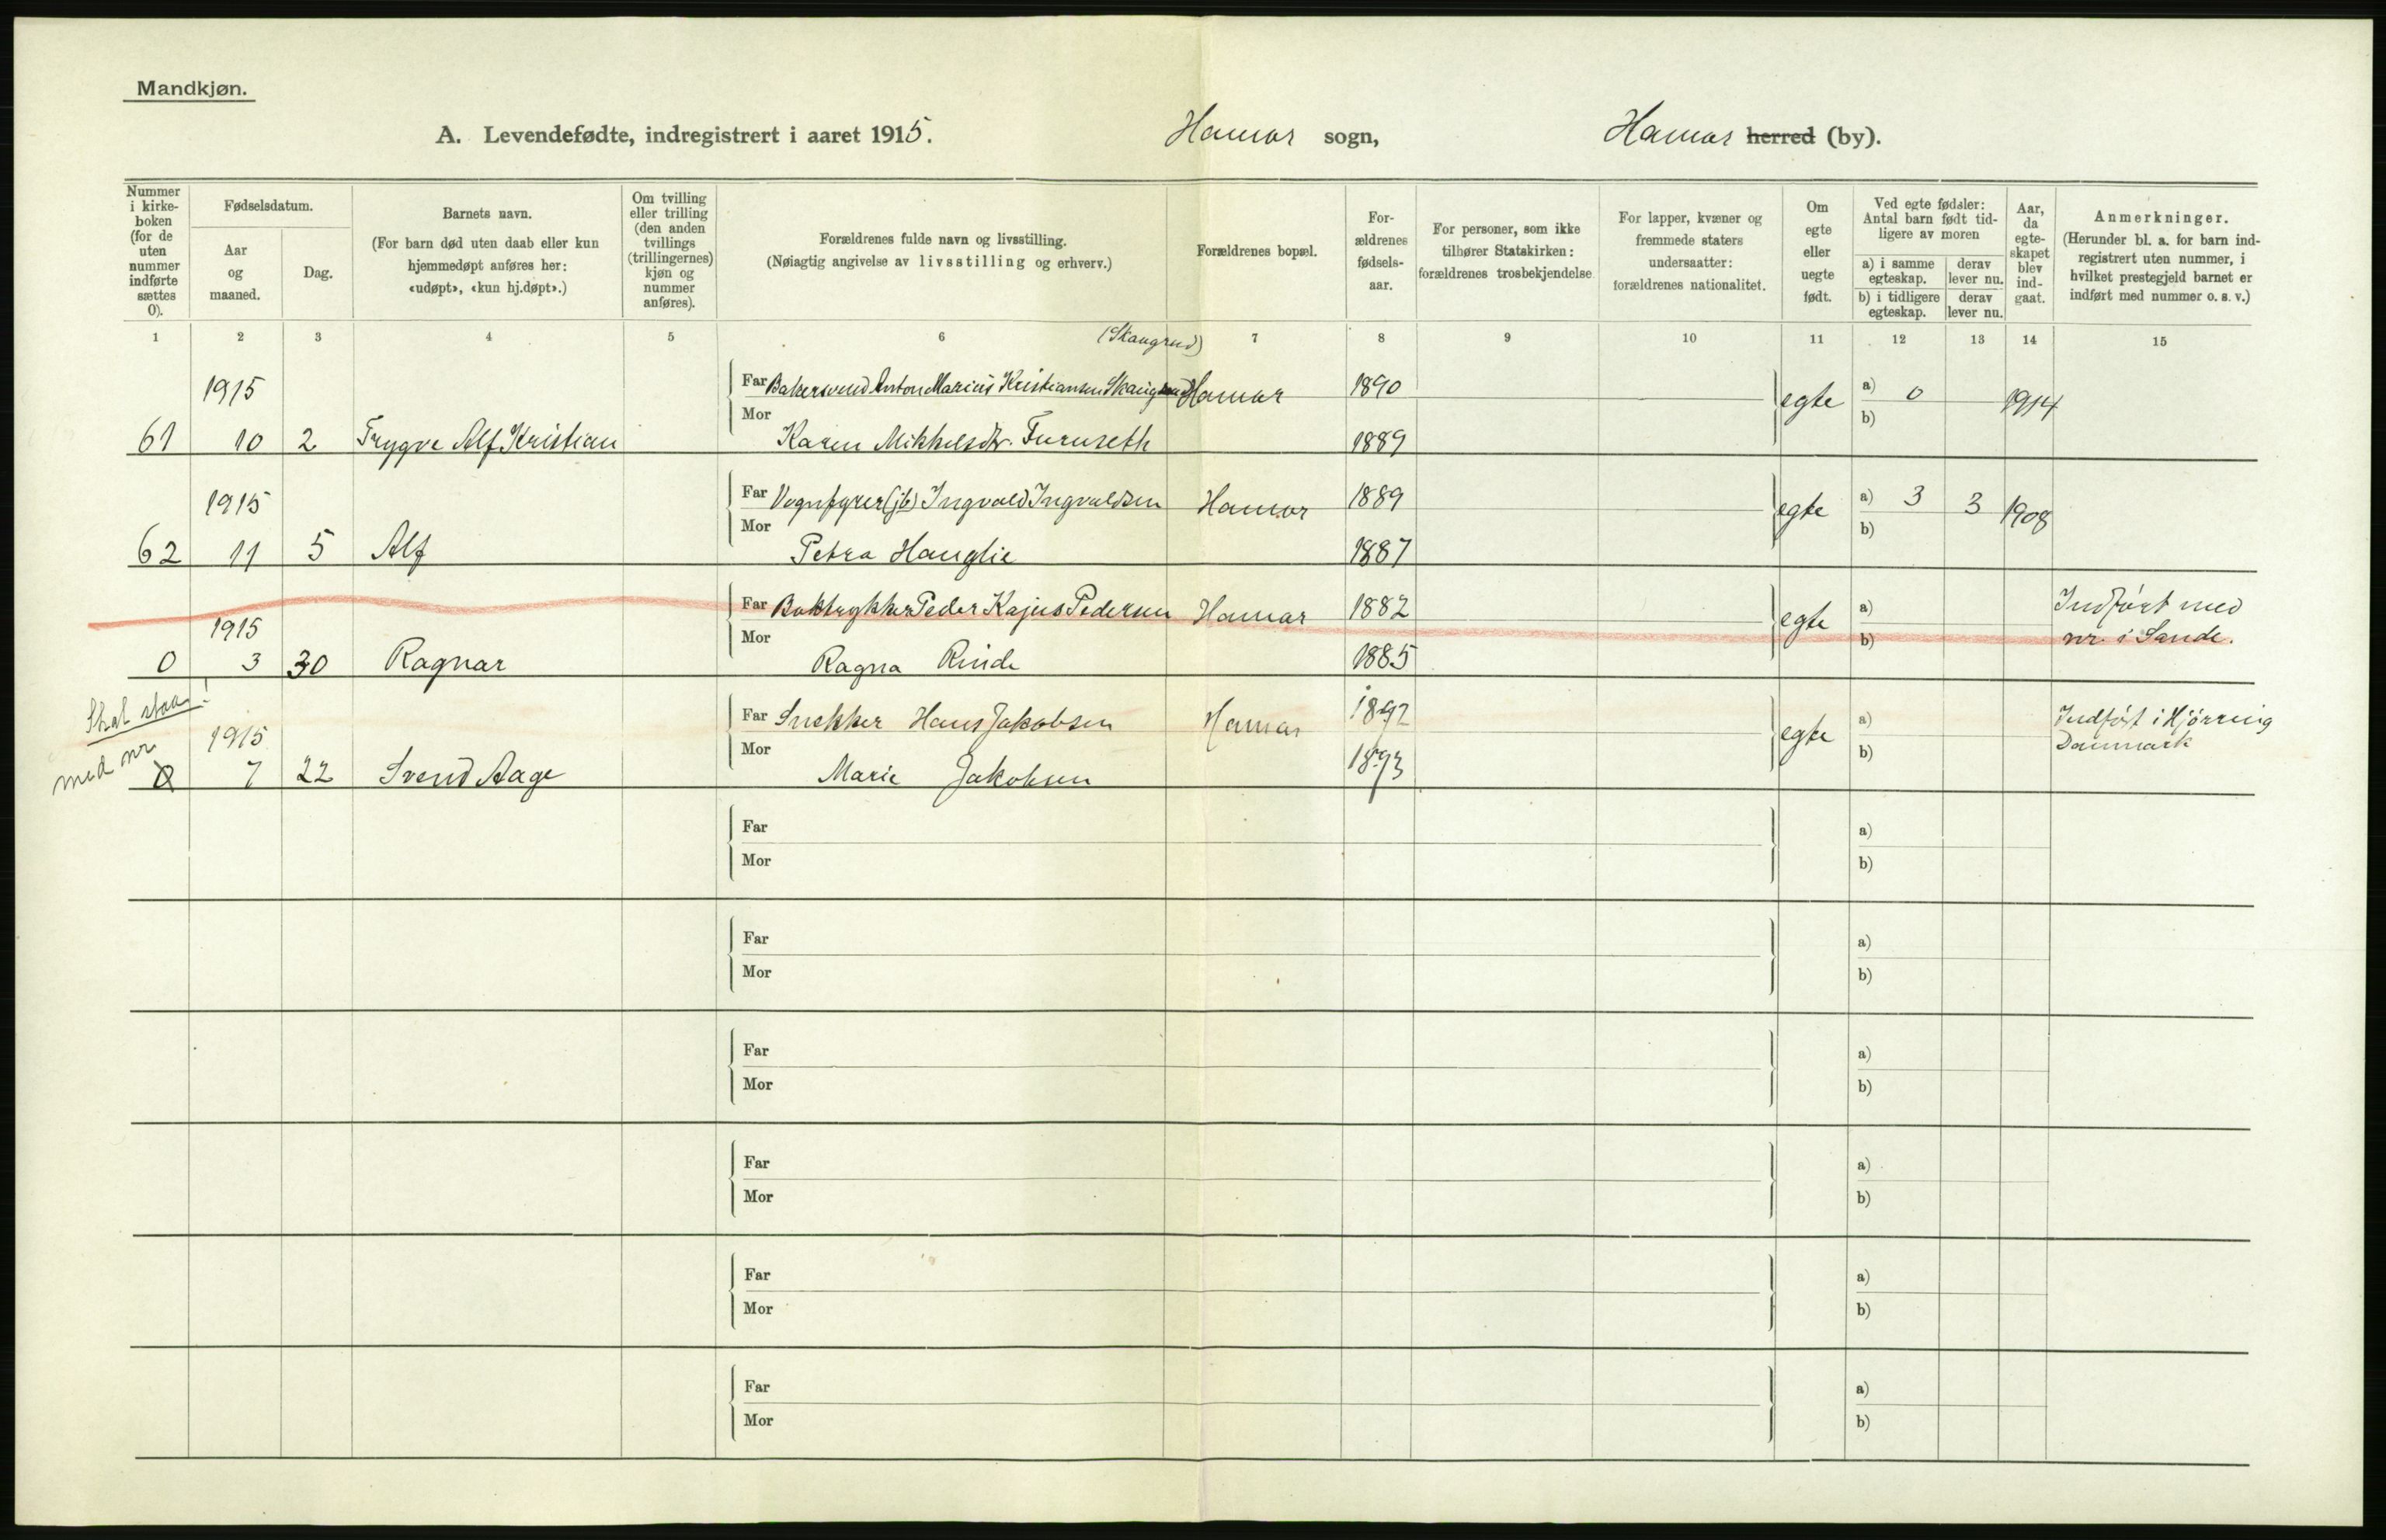 Mandkjøn.
A. Levendefødte, indregistrert i aaret 1915. Hamar sogn, Hamar herred (by).
Nummer i kirke- boken (for de uten nummer indførte sættes 0).
Fødselsdatum.
Aar og maaned.
Dag.
Barnets navn.
(For barn død uten daab eller kun hjemmedøpt anføres her: «udøpt», «kun hj.døpt».)
Om tvilling eller trilling (den anden tvillings (trillingernes) kjøn og nummer anføres).
Forældrenes fulde navn og livsstilling.
(Nøiagtig angivelse av livsstilling og erhverv.)
Forældrenes bopæl.
For- ældrenes fødsels- aar.
For personer, som ikke tilhører Statskirken: forældrenes trosbekjendelse
For lapper, kvæner og fremmede staters undersaatter: forældrenes nationalitet.
Om egte eller uegte født.
Ved egte fødsler: Antal barn født tid- ligere av moren
a) i samme egteskap.
derav lever nu.
b) i tidligere egteskap.
derav lever nu.
Aar, da egte- skapet blev ind- gaat.
Anmerkninger.
(Herunder bl. a. for barn ind- registrert uten nummer, i hvilket prestegjeld barnet er indført med nummer o. s. v.)
1 2 3 4 5 6 7 8 9 10 11 12 13 14 15
(Skaugrud)
1915 Far Bakersvend Anton Marius Kristiansen Skaugrud Hamar 1890 egte a) 0 1914
61 10 2 Trygve Alf Kristian Mor Karen Mikkelsdtr. Furuseth 1889 b)
1915 Far Vognfyrer (jb) Ingvald Ingvaldsen Hamar 1889 egte a) 3 3 1908
62 11 5 Alf Mor Petra Hauglie 1887 b)
1915 Far Boktrykker Peder Kajus Pedersen Hamar 1882 egte a) Indført med
0 3 30 Ragnar Mor Ragna Rinde 1885 b) nr. i Sande.
Skal staa!
med nr
1915 Far Snekker Hans Jakobsen Hamar 1892 egte a) Indført i Hjørring
0 7 22 Svend Aage Mor Marie Jakobsen 1893 b) Danmark
Far a)
Mor b)
Far a)
Mor b)
Far a)
Mor b)
Far a)
Mor b)
Far a)
Mor b)
Far a)
Mor b)